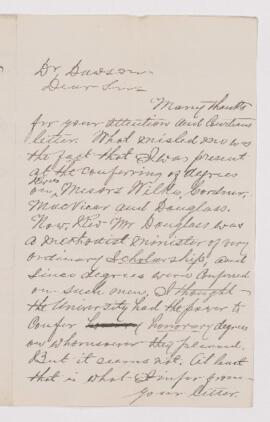 Dr Dawson
Dear Sir
Many thanks
for your attention and Courteous
letter. What misled me was
the fact that I was present
at the conferring of degrees
Revs
on, Messrs Wilks, Gordner,
MacVicar and Douglass.
Now, Rev Mr Douglass was
a Methodist Minister of very
ordinary Scholarship, and
since degrees were Conferred
on such men, I thought
the University had the power to
Confer honorary degrees
on whomsoever they pleased.
But it seems not. At least
that is what I infer from
your letter.